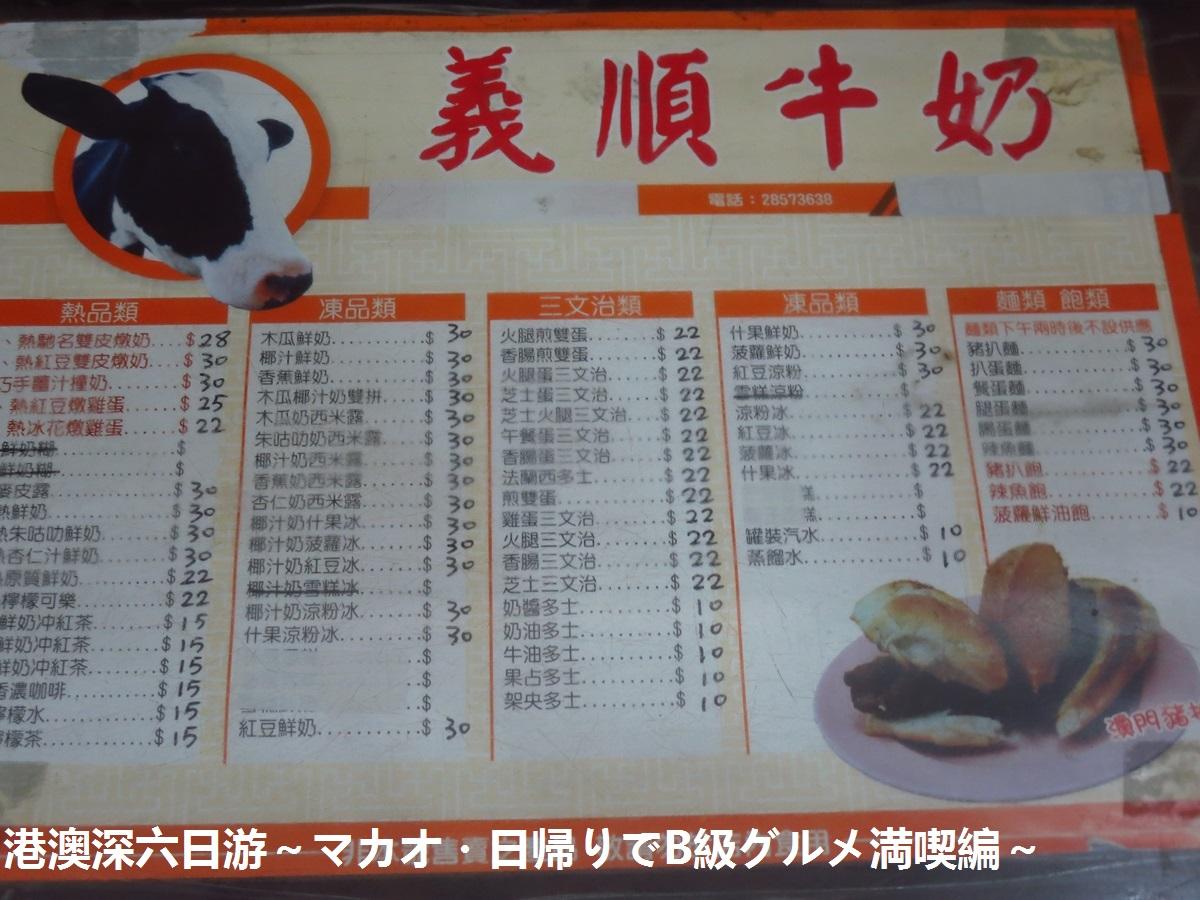 義順牛奶
電話：28573638
熱品類
、熱馳名雙皮燉奶.....$28
、熱紅豆雙皮燉奶.....$30
巧手薑汁撞奶..........$30
熱紅豆燉雞蛋......$25
熱冰花燉雞蛋......$22
鮮奶糊..............$
鮮奶糊..............$
麥皮露..............$30
熱鮮奶..............$30
熱朱咕叻鮮奶........$30
熱杏仁汁鮮奶........$30
熱原質鮮奶..........$22
檸檬可樂............$22
鮮奶冲紅茶..........$15
鮮奶冲紅茶..........$15
鮮奶冲紅茶..........$15
香濃咖啡............$15
檸檬水..............$15
檸檬茶..............$15
凍品類
木瓜鮮奶............$30
椰汁鮮奶............$30
香蕉鮮奶............$30
木瓜椰汁奶雙拼......$30
木瓜奶西米露........$30
朱咕叻奶西米露......$30
椰汁奶西米露........$30
香蕉奶西米露........$30
杏仁奶西米露........$30
椰汁奶什果冰........$30
椰汁奶菠蘿冰........$30
椰汁奶紅豆冰........$30
椰汁奶雪糕冰........$
椰汁奶涼粉冰........$30
什果涼粉冰..........$30
$
$
紅豆鮮奶............$30
三文治類
火腿煎雙蛋..........$22
香腸煎雙蛋..........$22
火腿蛋三文治........$22
芝士蛋三文治........$22
芝士火腿三文治......$22
午餐蛋三文治........$22
香腸蛋三文治........$22
法蘭西多士..........$22
煎雙蛋..............$22
雞蛋三文治..........$22
火腿三文治..........$22
香腸三文治..........$22
芝士三文治..........$22
奶醬多士............$10
奶油多士............$10
牛油多士............$10
果占多士............$10
架央多士............$10
凍品類
什果鮮奶............$30
菠蘿鮮奶............$30
紅豆涼粉............$30
雪糕涼粉............$
涼粉冰..............$22
紅豆冰..............$22
菠蘿冰..............$22
什果冰..............$22
$
$
罐裝汽水............$10
蒸餾水..............$10
麵類 飽類
麵類下午兩時後不設供應
豬扒麵..............$30
扒蛋麵..............$30
餐蛋麵..............$30
腿蛋麵..............$30
腸蛋麵..............$30
辣魚麵..............$30
豬扒飽..............$22
辣魚飽..............$22
菠蘿鮮油飽..........$10
澳門豬扒
港澳深六日游～マカオ・日帰りでB級グルメ満喫編～